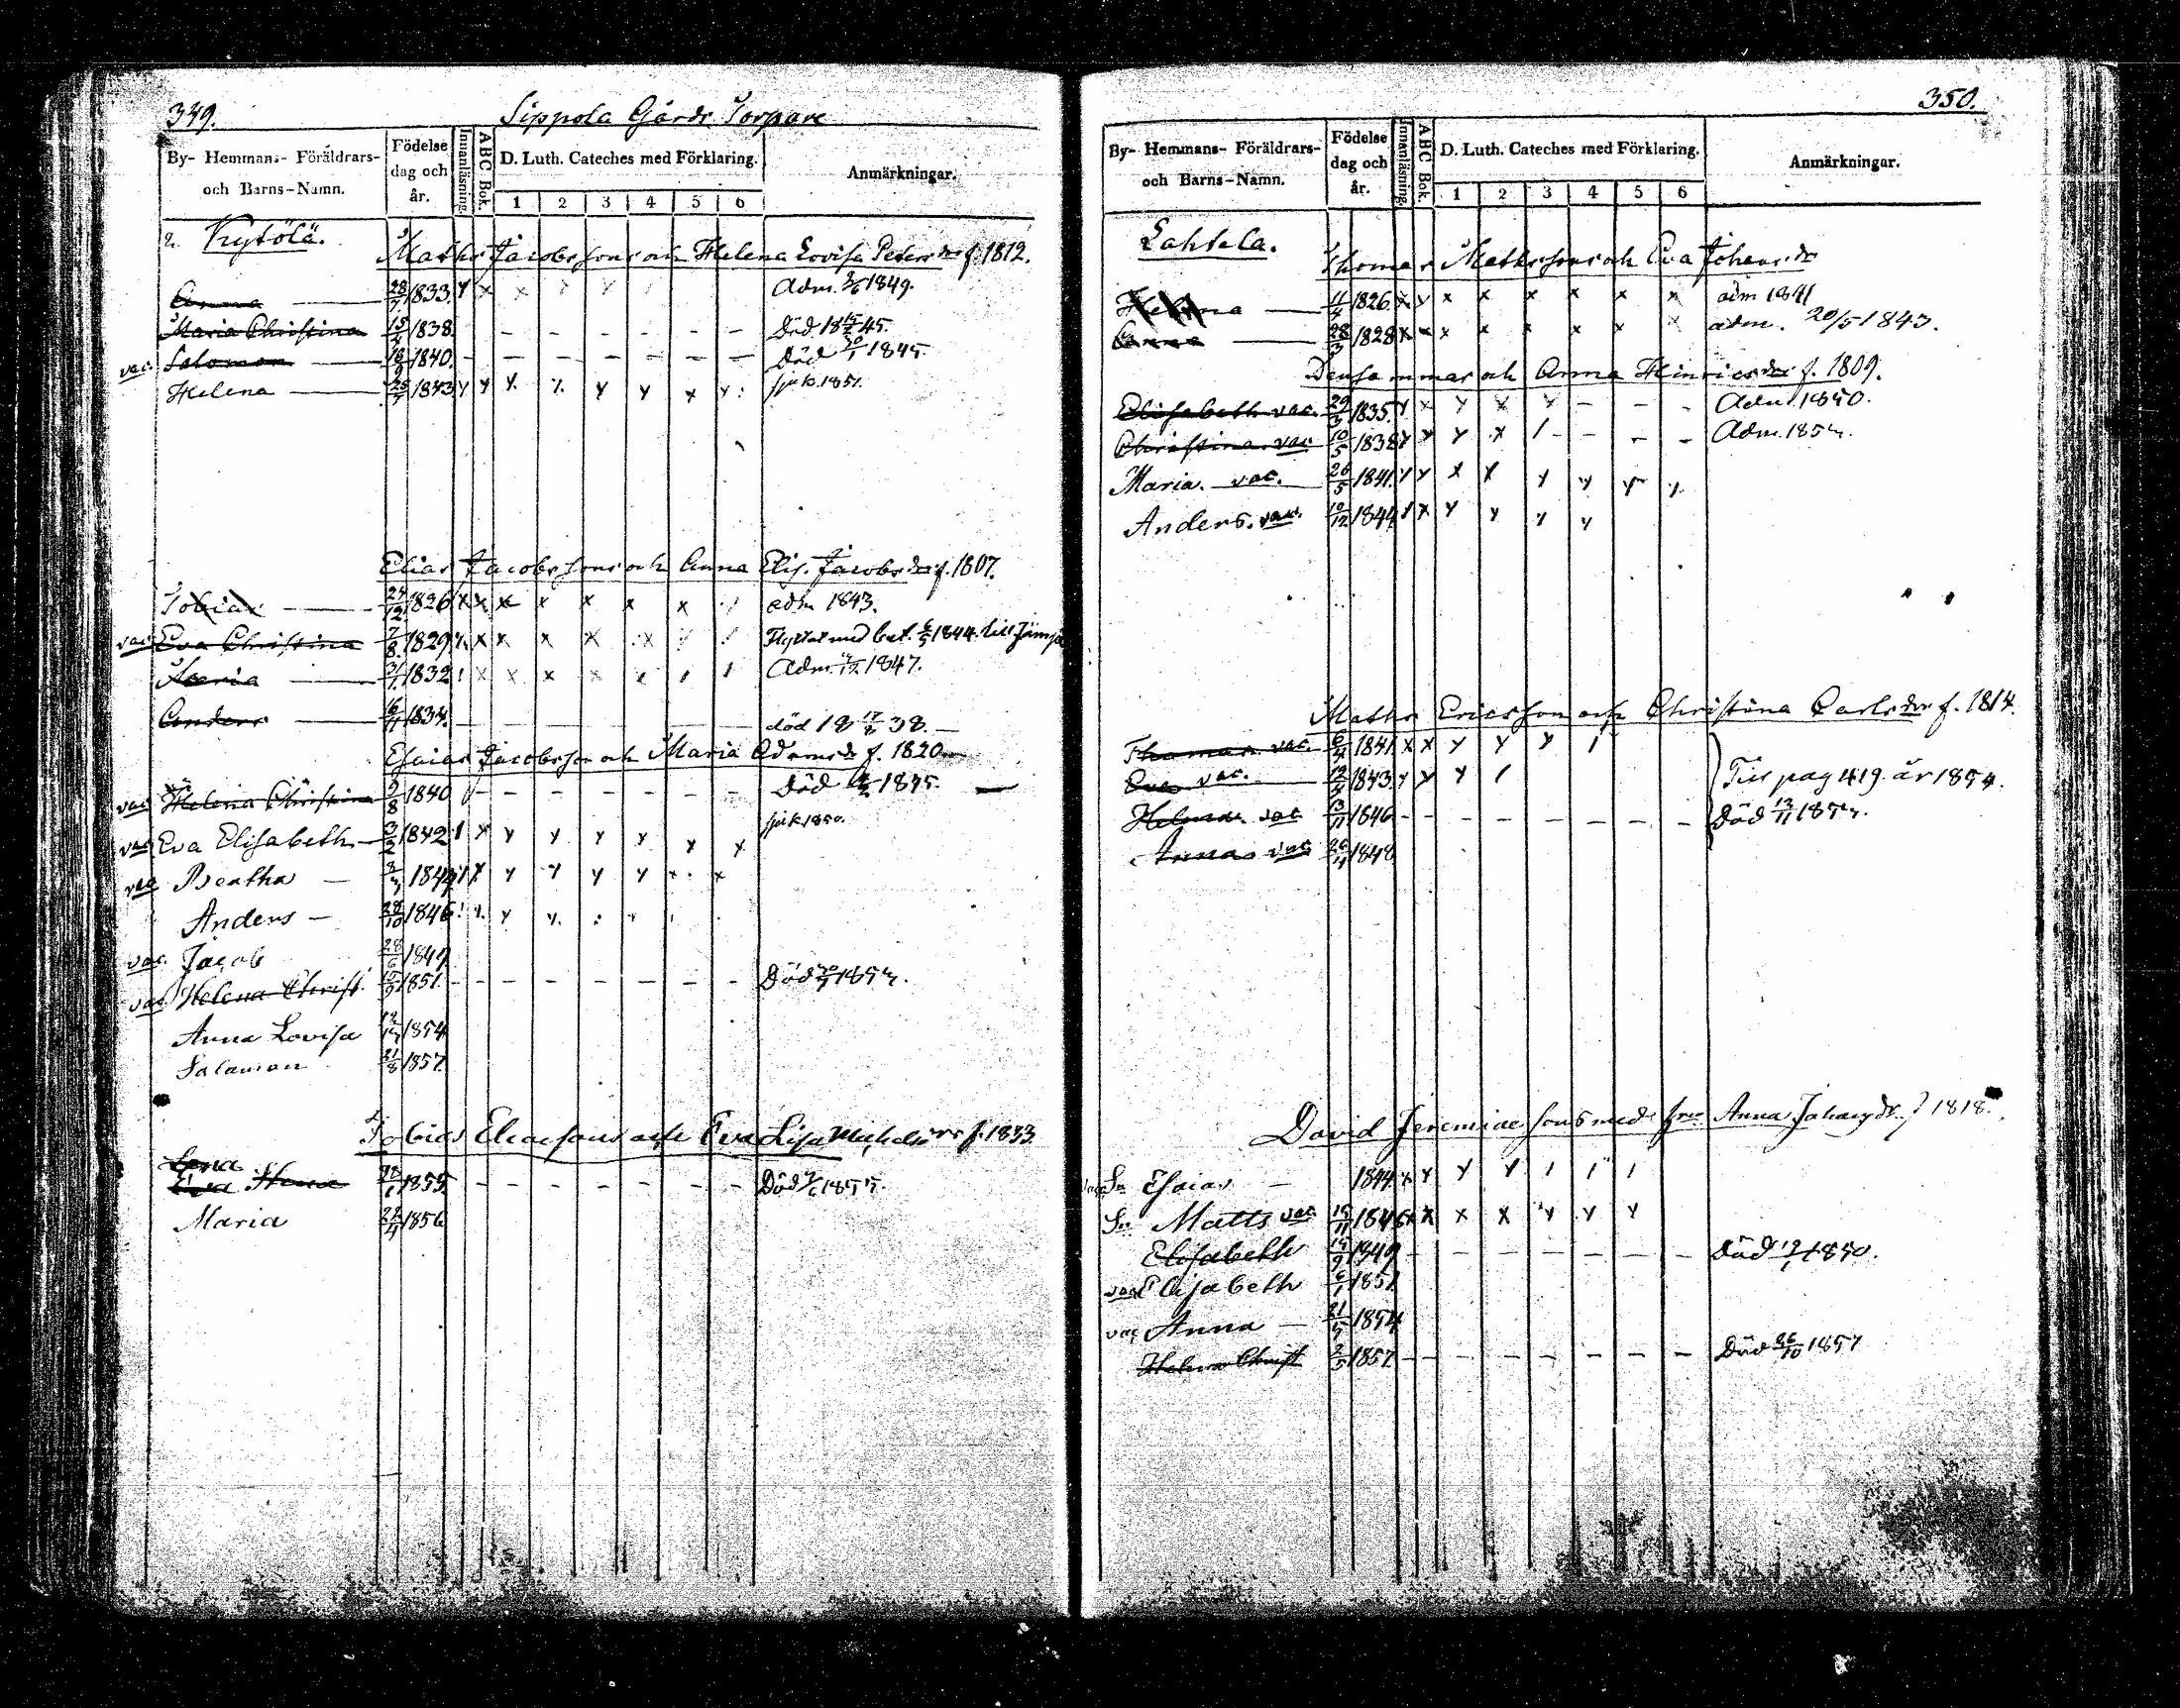 349. Sippola Gårds Torpare
By- Hemmans- Föräldrars- och Barns-Namn. Födelse dag och år. Innanläsning. ABC Bok. D. Luth. Cateches med Förklaring. 1 2 3 4 5 6 Anmärkningar.
2. Kytölä.
Matts Jacobssons och Helena Lovisa Petersdr f. 1812.
Anna 28/7 1833. Adm. 1849.
Maria Christina 15/4 1838. Död 18 15/2 45.
vac. Salomon 18/9 1840. Död 30/1 1845.
Helena 1843 sjuk. 1851.
Elias Jacobssons och Anna Elis. Jacobsdr f. 1807.
Tobias 24/12 1826 adm 1843.
vac. Eva Christina 7/8 1829 Flyttat med bet. 1844 till
Maria 31/1 1832 Adm. 1847.
Anders 6/11 1834. död 18 38.
Esaias Jacobsson och Maria Adamsdr f. 1820
vac. Helena Christina 9/8 1840 Död 1845.
vac Eva Elisabeth 3/2 1842 sjuk 1850.
vac Beatha 1844
Anders 28/10 1846
vac. Jacob 1849
vac Helena Christ. 15/9 1851. Död
Anna Lovisa 1854
Salamon 21/8 1857
Tobias Eliaesons och Eva Lisa f. 1833
Lena
Eva Stina 1855 Död
Maria 22/4 1856
350.
By- Hemmans- Föräldrars- och Barns-Namn. Födelse dag och år. Innanläsning. ABC Bok. D. Luth. Cateches med Förklaring. 1 2 3 4 5 6 Anmärkningar.
Lahtela.
Thomas Matssons och Eva Johansdr
Helena 11/4 1826 adm 1841
Anna 28/3 1828 adm. 20/5 1843.
Densammas och Anna Hinricsdr f. 1809.
Elisabeth vac. 29/3 1835. Adm. 1850.
Christina vac 10/5 1838 Adm.
Maria. vac. 26/5 1841.
Anders. vac. 10/12 1844
Matts Ericsson och Christina Carlsdr f. 1814.
Thomas vac. 6/4 1841
Eva vac. 12/4 1843. Till pag 419 år 1854.
Helena vac 13/11 1846 Död 13/11
Anna vac 26/4 1848
David Jeremiae sons med hru Anna Johansdr. f 1818.
Sn Esaias 1844
Sn Matts vac 15/11 1846
Elisabeth 1849 Död 1850.
vac Elisabeth 6/1 1851
vac Anna 1854
Helena Christ 2/5 1857 Död 26/10 1857